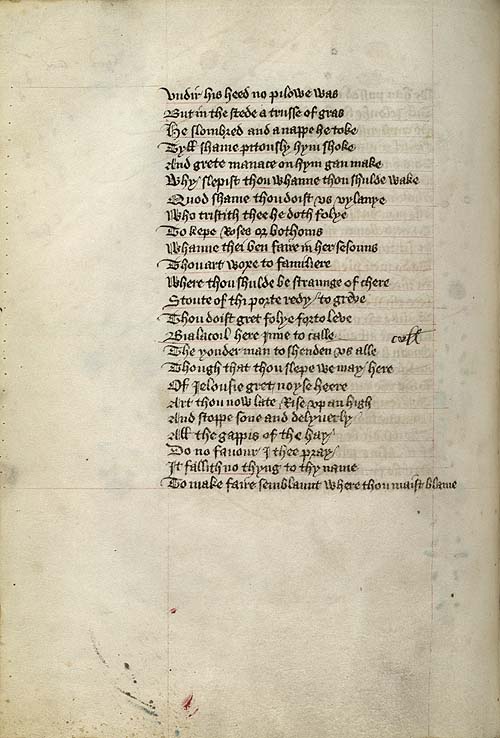 Vndir his heed no pilowe was
But in the stede a trusse of gras
He slombred and a nappe he toke
Tyll shame pitously hym shoke
And grete manace on hym gan make
Why slepist thou whanne thou shulde wake
Quod shame thou doist vs vylanye
Who tristith thee he doth folye
To kepe Roses or bothoms
Whanne thei ben faire in her sesouns
Thou art woxe to familiere
Where thou shulde be straunge of chere
Stoute of thi porte redy to greve
Thou doist gret folye forto leve
Bialacoil here inne to calle
The yonder man to shenden vs alle
Though that thou slepe we may here
Of Jelousie gret noyse heere
Art thou now late Rise vp an high
And stoppe sone and delyuerly
All the gappis of the hay
Do no favour I thee pray
It fallith no thyng to thy name
To make faire semblaunt where thou maist blame